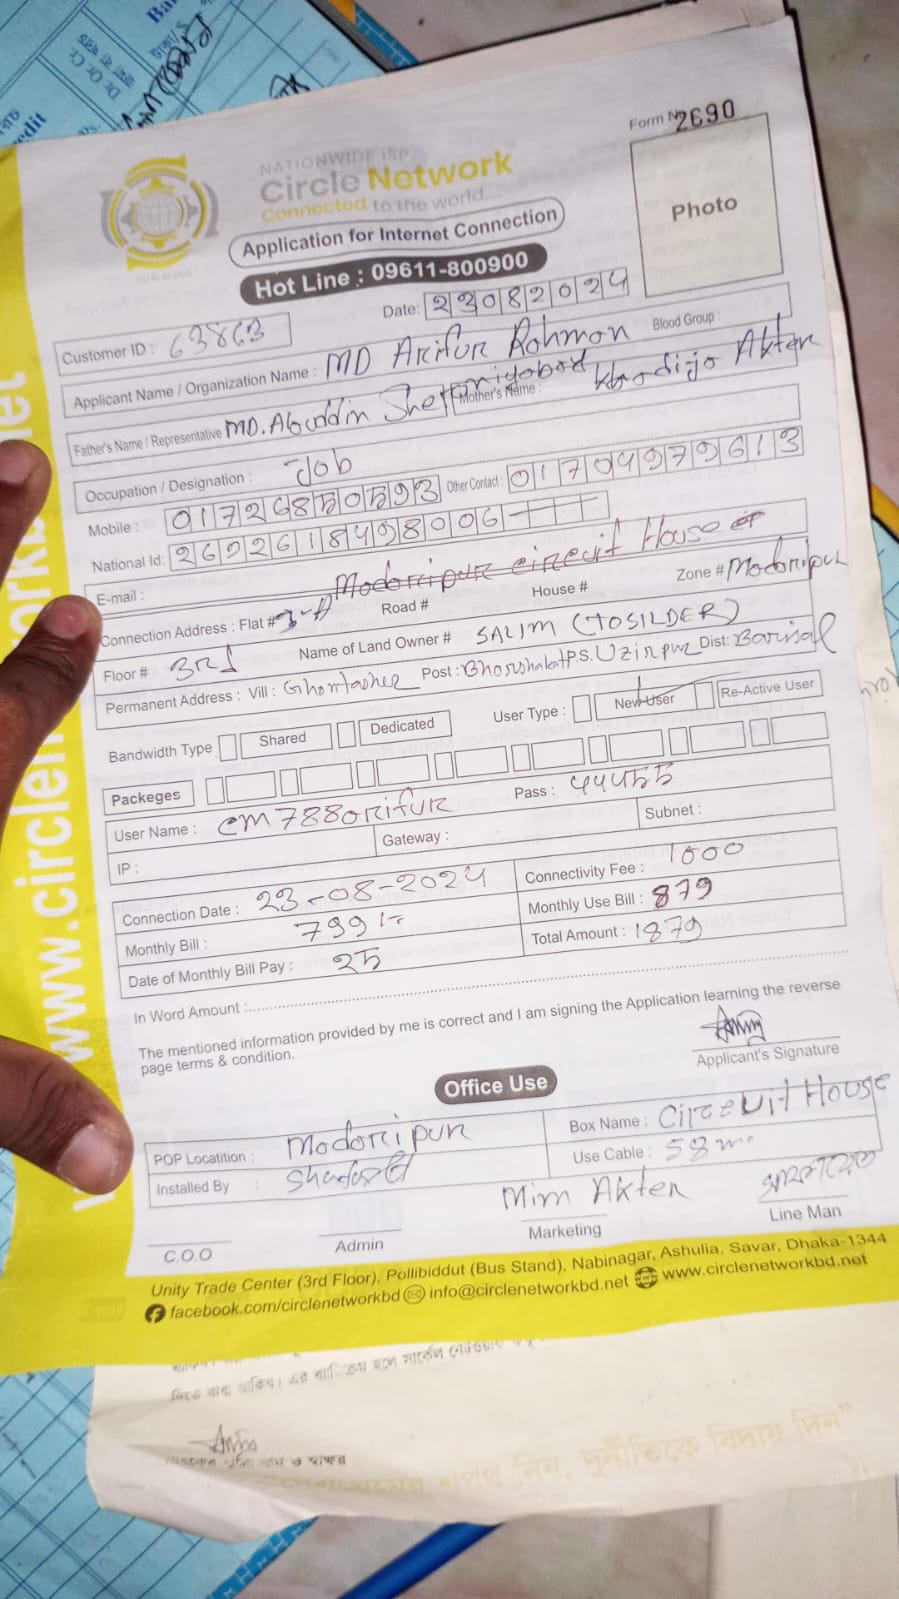 Form No 2690
NATIONWIDE ISP
Circle Network
Connected to the world....
Application for Internet Connection
Hot Line : 09611-800900
Photo
Date: 23082024
Customer ID : 63863
Applicant Name / Organization Name : MD Arifur Rohmon Blood Group :
Father's Name / Representative MD. Mother's Name : Khodijo Akter
Occupation / Designation : Job
Mobile : Other Contact : 01704979613
National Id: 2692618498006
E-mail :
Modoripur circuit House
Connection Address : Flat # 3-A Road # House # Zone # Modoripur
Floor # 3rd Name of Land Owner # SALIM (TOSILDER)
Permanent Address : Vill : Post : P.S. Uzirpur Dist: Borisal
Bandwidth Type Shared Dedicated User Type : New User Re-Active User
Packeges
User Name : cm788orifur Pass : 44455
IP : Gateway : Subnet :
Connection Date : 23-08-2024 Connectivity Fee : 1000
Monthly Bill : 799 Monthly Use Bill : 879
Date of Monthly Bill Pay : 25 Total Amount : 1879
In Word Amount :
The mentioned information provided by me is correct and I am signing the Application learning the reverse
page terms & condition.
Applicant's Signature
Office Use
POP Locatition : Modoripur Box Name : Circuit House
Installed By : Use Cable : 58 m
Mim Akter
C.O.O Admin Marketing Line Man
Unity Trade Center (3rd Floor), Pollibiddut (Bus Stand), Nabinagar, Ashulia, Savar, Dhaka-1344
facebook.com/circlenetworkbd info@circlenetworkbd.net www.circlenetworkbd.net